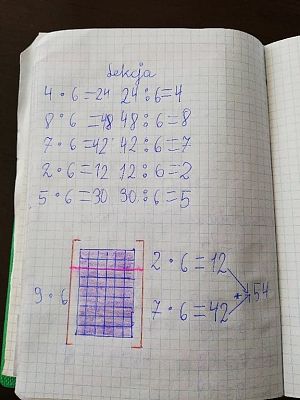 Lekcja
4 · 6 = 24 24 : 6 = 4
8 · 6 = 48 48 : 6 = 8
7 · 6 = 42 42 : 6 = 7
2 · 6 = 12 12 : 6 = 2
5 · 6 = 30 30 : 6 = 5
2 · 6 = 12
9 · 6
+ 54
7 · 6 = 42